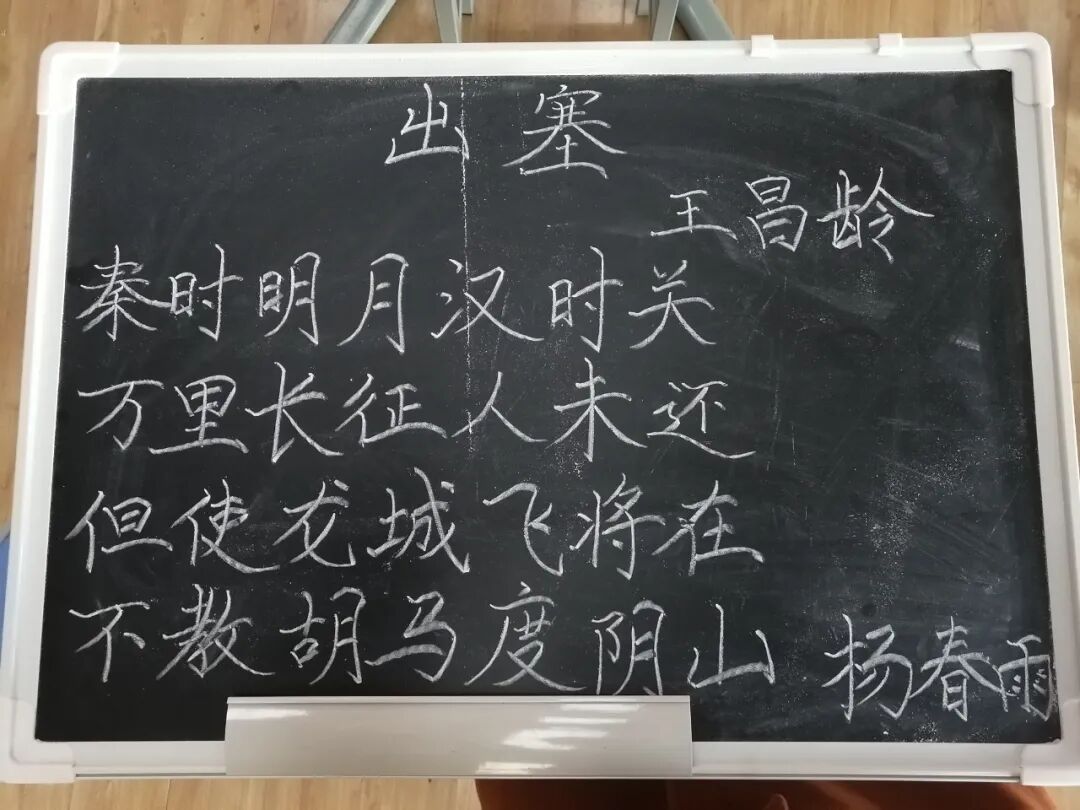 出塞
王昌龄
秦时明月汉时关
万里长征人未还
但使龙城飞将在
不教胡马度阴山
杨春雨